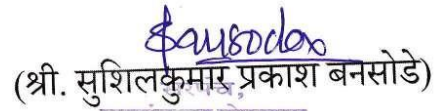 Bansode
(श्री. सुशिलकुमार प्रकाश बनसोडे)